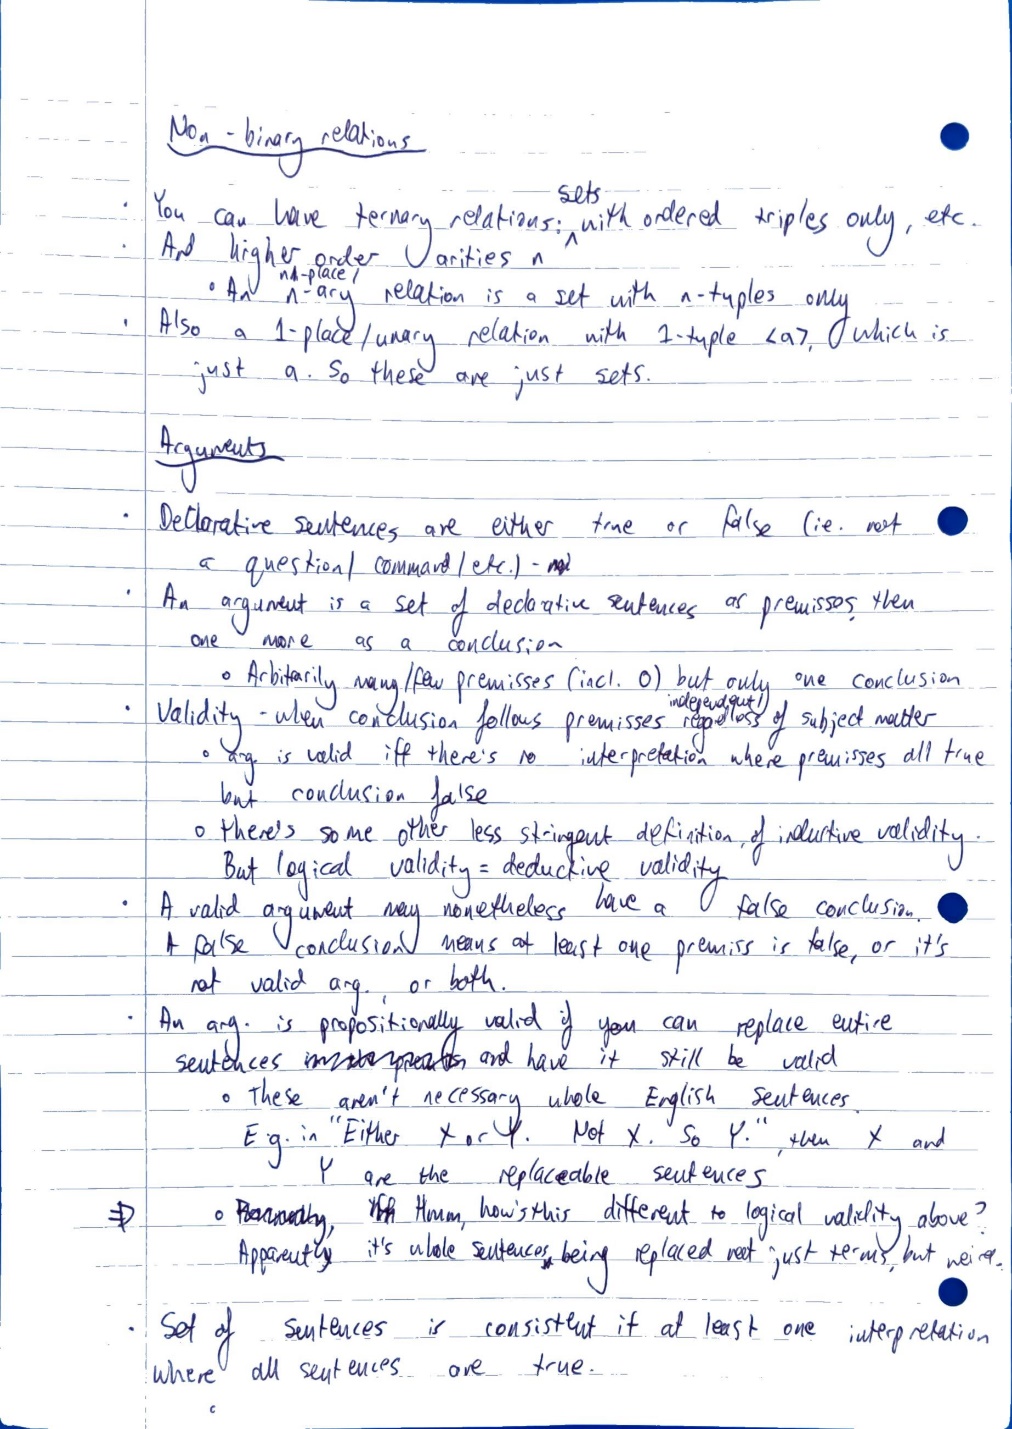 Non-binary relations
· You can have ternary relations: sets with ordered triples only, etc.
· And higher order arities n
◦ An n-place/ n-ary relation is a set with n-tuples only
· Also a 1-place/unary relation with 1-tuple <a>, which is
just a. So these are just sets.
Arguments
· Declarative sentences are either true or false (ie. not
a question/command/etc.) -
· An argument is a set of declarative sentences as premisses, then
one more as a conclusion
◦ Arbitrarily many/few premisses (incl. 0) but only one conclusion
· Validity - when conclusion follows premisses independent/ regardless of subject matter
◦ arg. is valid iff there's no interpretation where premisses all true
but conclusion false
◦ there's some other less stringent definition of inductive validity.
But logical validity = deductive validity
· A valid argument may nonetheless have a false conclusion.
A false conclusion means at least one premiss is false, or it's
not valid arg., or both.
· An arg. is propositionally valid if you can replace entire
sentences and have it still be valid
◦ These aren't necessary whole English sentences.
E.g. in "Either X or Y. Not X. So Y.", then X and
Y are the replaceable sentences
⇒ ◦ Hmm, how's this different to logical validity above?
Apparently it's whole sentences being replaced not just terms, but weird.
· Set of sentences is consistent if at least one interpretation
where all sentences are true.